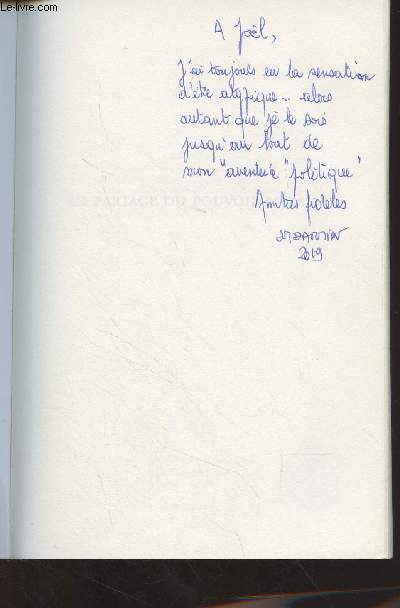 Le-livre.com
A Joël,
J'ai toujours eu la sensation
d'être atypique... alors
autant que je le sois
jusqu'au bout de
mon "aventure "politique"
Amitiés fidèles
2019
PARTAGE DU POUVOIR